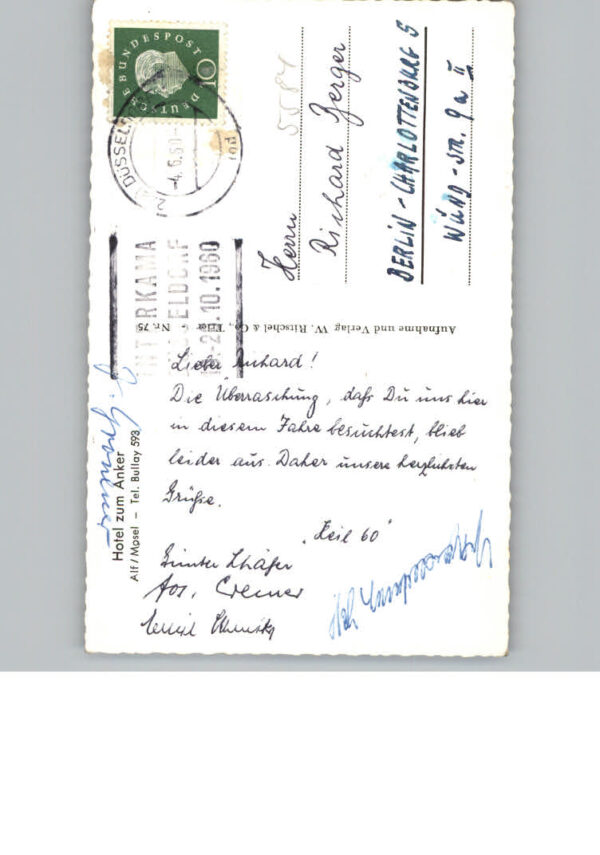 DEUTSCHE BUNDESPOST
10
DÜSSELD
-4.6.60-
INTERKAMA
DÜSSELDORF
10.1960
5584
Herrn
Richard Berger
BERLIN-CHARLOTTENBURG 5
WUND-STR. 9a II
Aufnahme und Verlag W. Ritschel & Co., Trier - Nr. 75
Lieber Richard!
Die Überraschung, daß Du uns hier
in diesem Jahre besuchtest, blieb
leider aus. Daher unsere herzlichsten
Grüße.
"Keil 60"
Günter Schäfer
Jos. Cremer
Hotel zum Anker
Alf/Mosel - Tel. Bullay 593